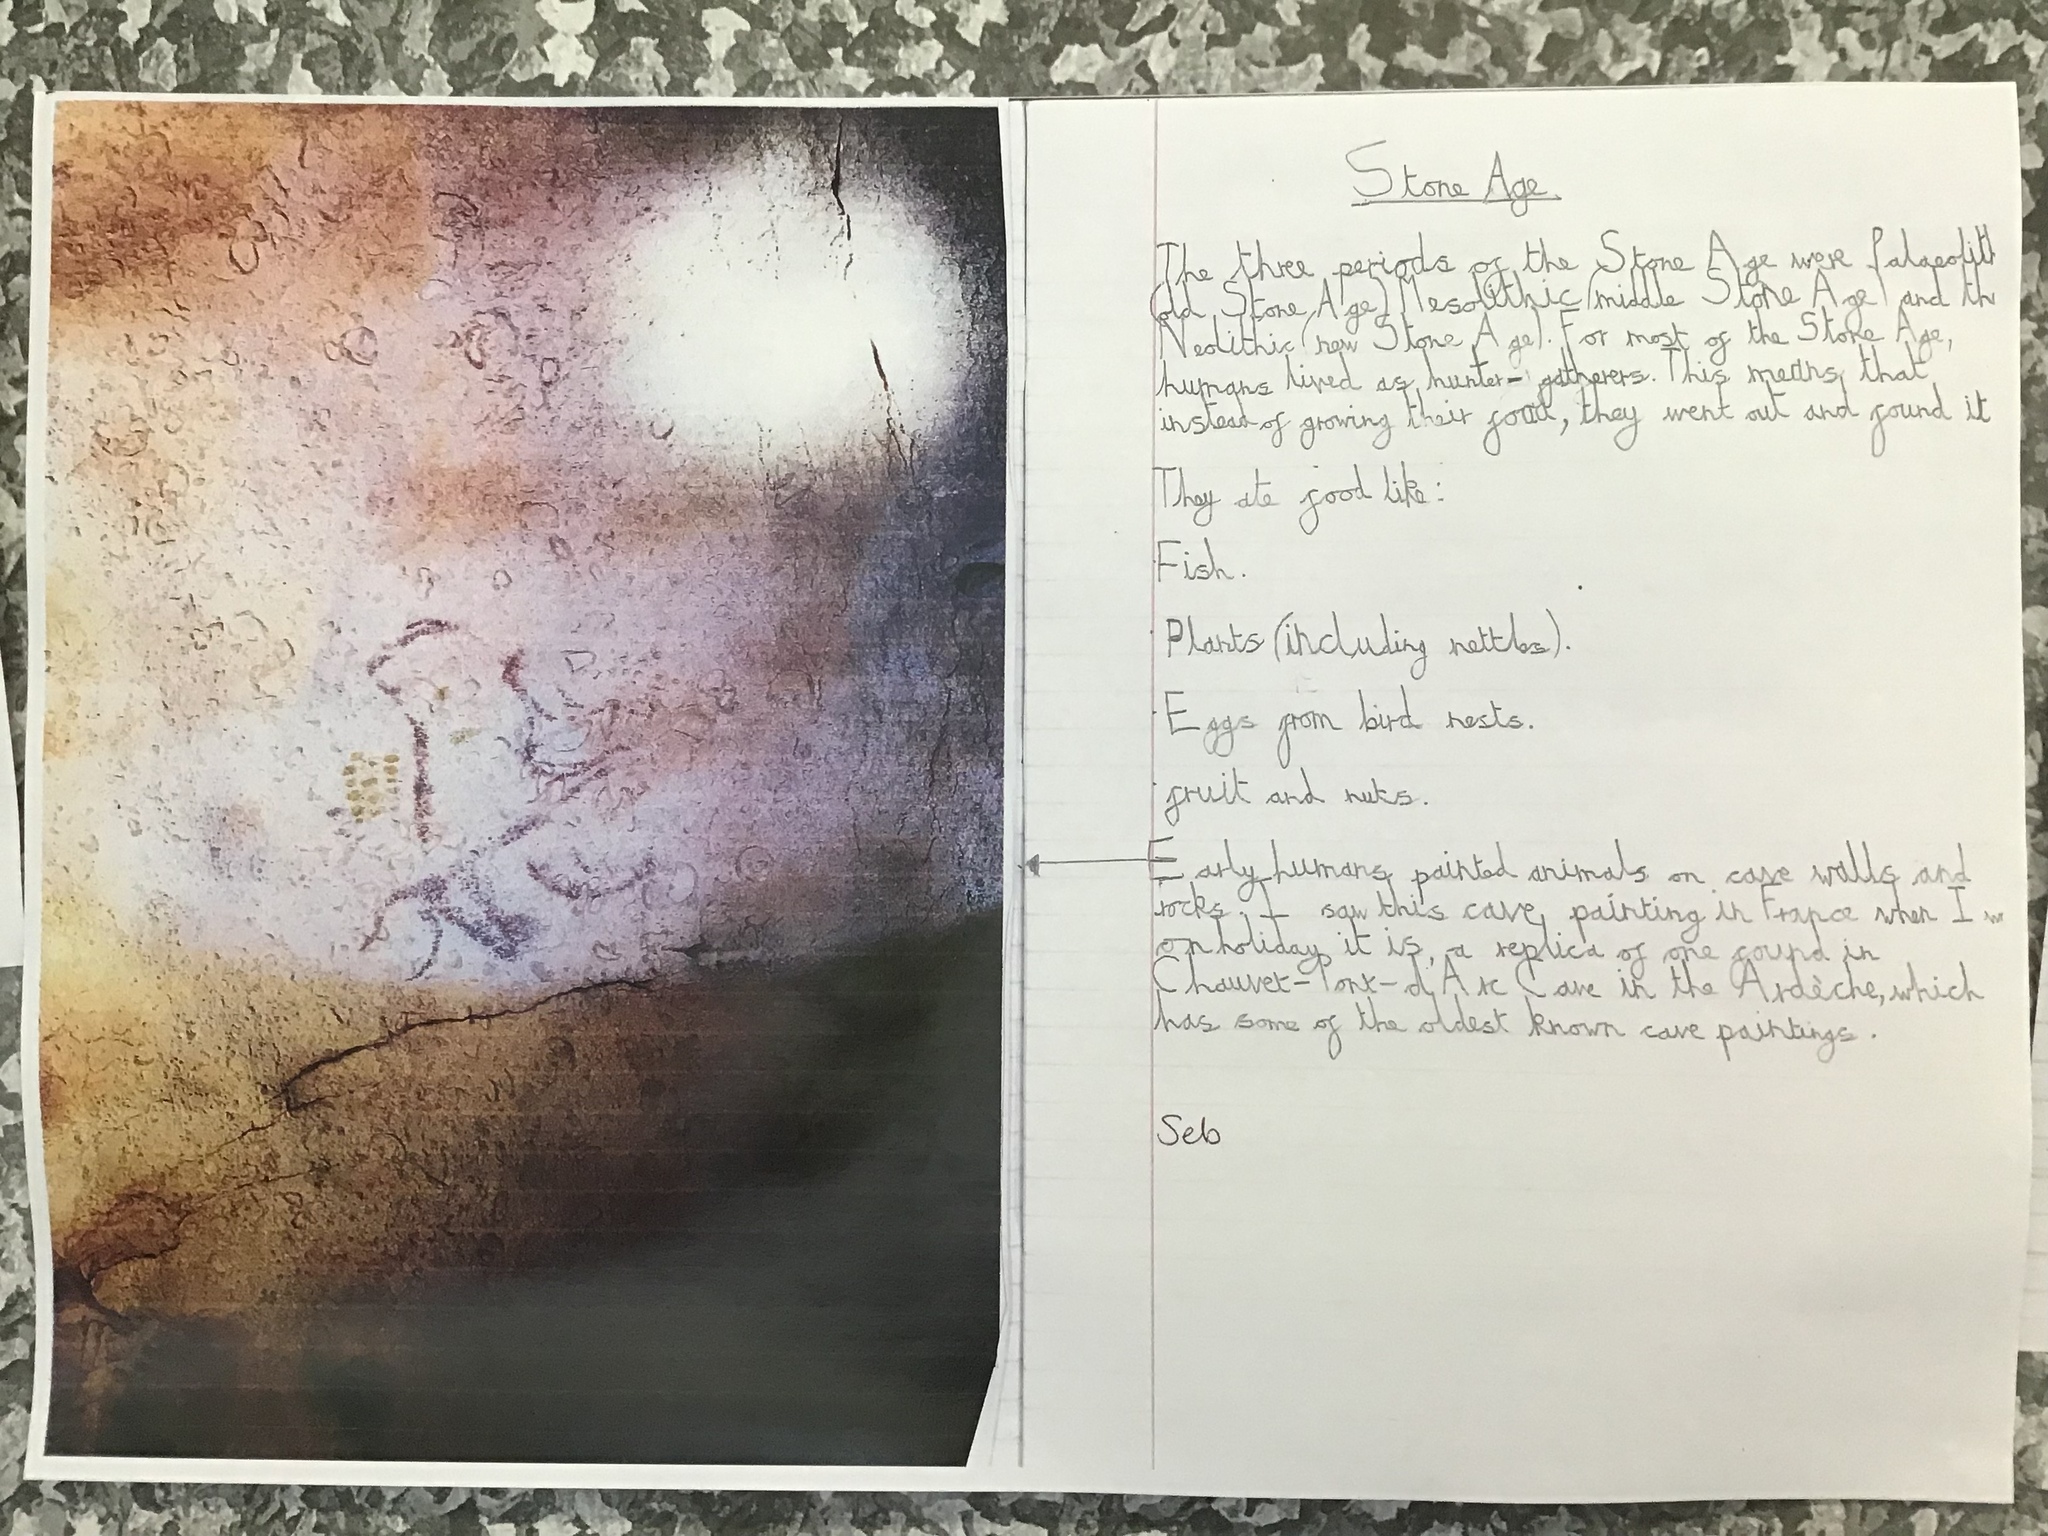 Stone Age
The three periods of the Stone Age were Palaeolith
(old Stone Age) Mesolithic (middle Stone Age) and th
Neolithic (new Stone Age). For most of the Stone Age,
humans lived as hunter-gatherers. This means that
instead of growing their food, they went out and found it
They ate food like:
Fish.
Plants (including nettles).
Eggs from bird nests.
fruit and nuts.
Early humans painted animals on cave walls and
rocks. I saw this cave painting in France when I w
on holiday it is, a replica of one found in
Chauvet-Pont-d Arc Cave in the Ardèche, which
has some of the oldest known cave paintings.
Seb